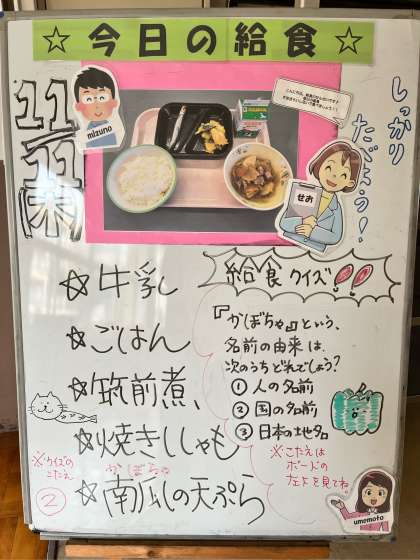 ☆今日の給食☆
11/11(木)
mizuno
せお
しっかり
たべよう!
☆牛乳
☆ごはん
☆筑前煮、
☆焼きししゃも
かぼちゃ
☆南瓜の天ぷら
給食クイズ!!
『かぼちゃ』という、
名前の由来は、
次のうちどれでしょう?
①人の名前
②国の名前
③日本の土地名
※こたえは
ボードの
左下を見てね。
※クイズの
こたえ
②
umemoto